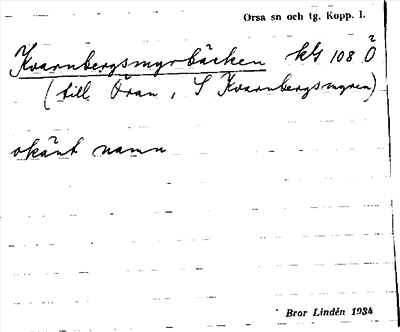 Orsa sn och tg. Kopp. l.
Kvarnbergsmyrbäcken kls 108 Ö
(till Öran, S Kvarnbergsmyren)
okänt namn
Bror Lindén 1934